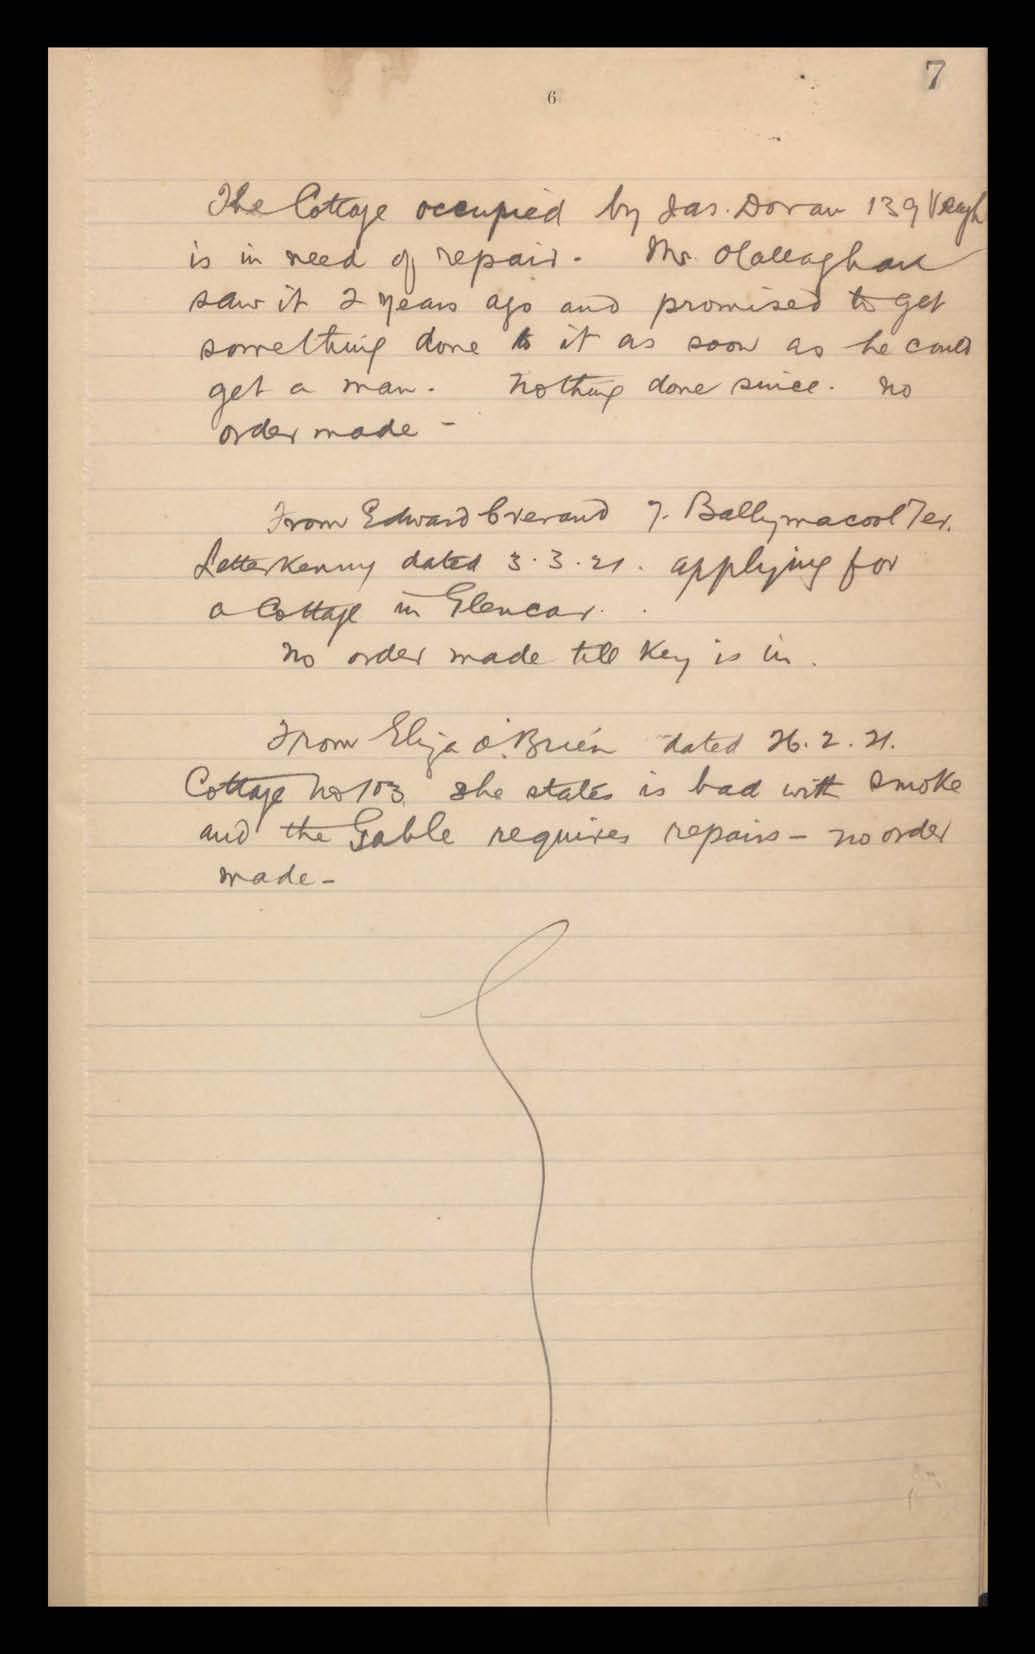 7
6
The Cottage occupied by Jas. Doran 139 Veagh
is in need of repair. Mr. OCallaghan
saw it 2 years ago and promised to get
something done to it as soon as he could
get a man. Nothing done since. No
order made -
From Edward 7. Ballymacool Ter.
Letterkenny dated 3.3.21. applying for
a Cottage in Glencar.
No order made till Key is in.
From Eliza O'Brien dated 26.2.21.
Cottage No 103 she states is bad with smoke
and the Gable requires repairs - no order
made -